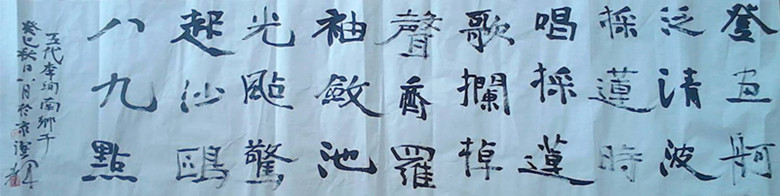 登画舸
泛清波
採蓮時
唱採蓮
歌攔棹
聲齊羅
袖斂池
光颭驚
起沙鷗
八九點
五代李珣南鄉子
癸巳秋日八月於京